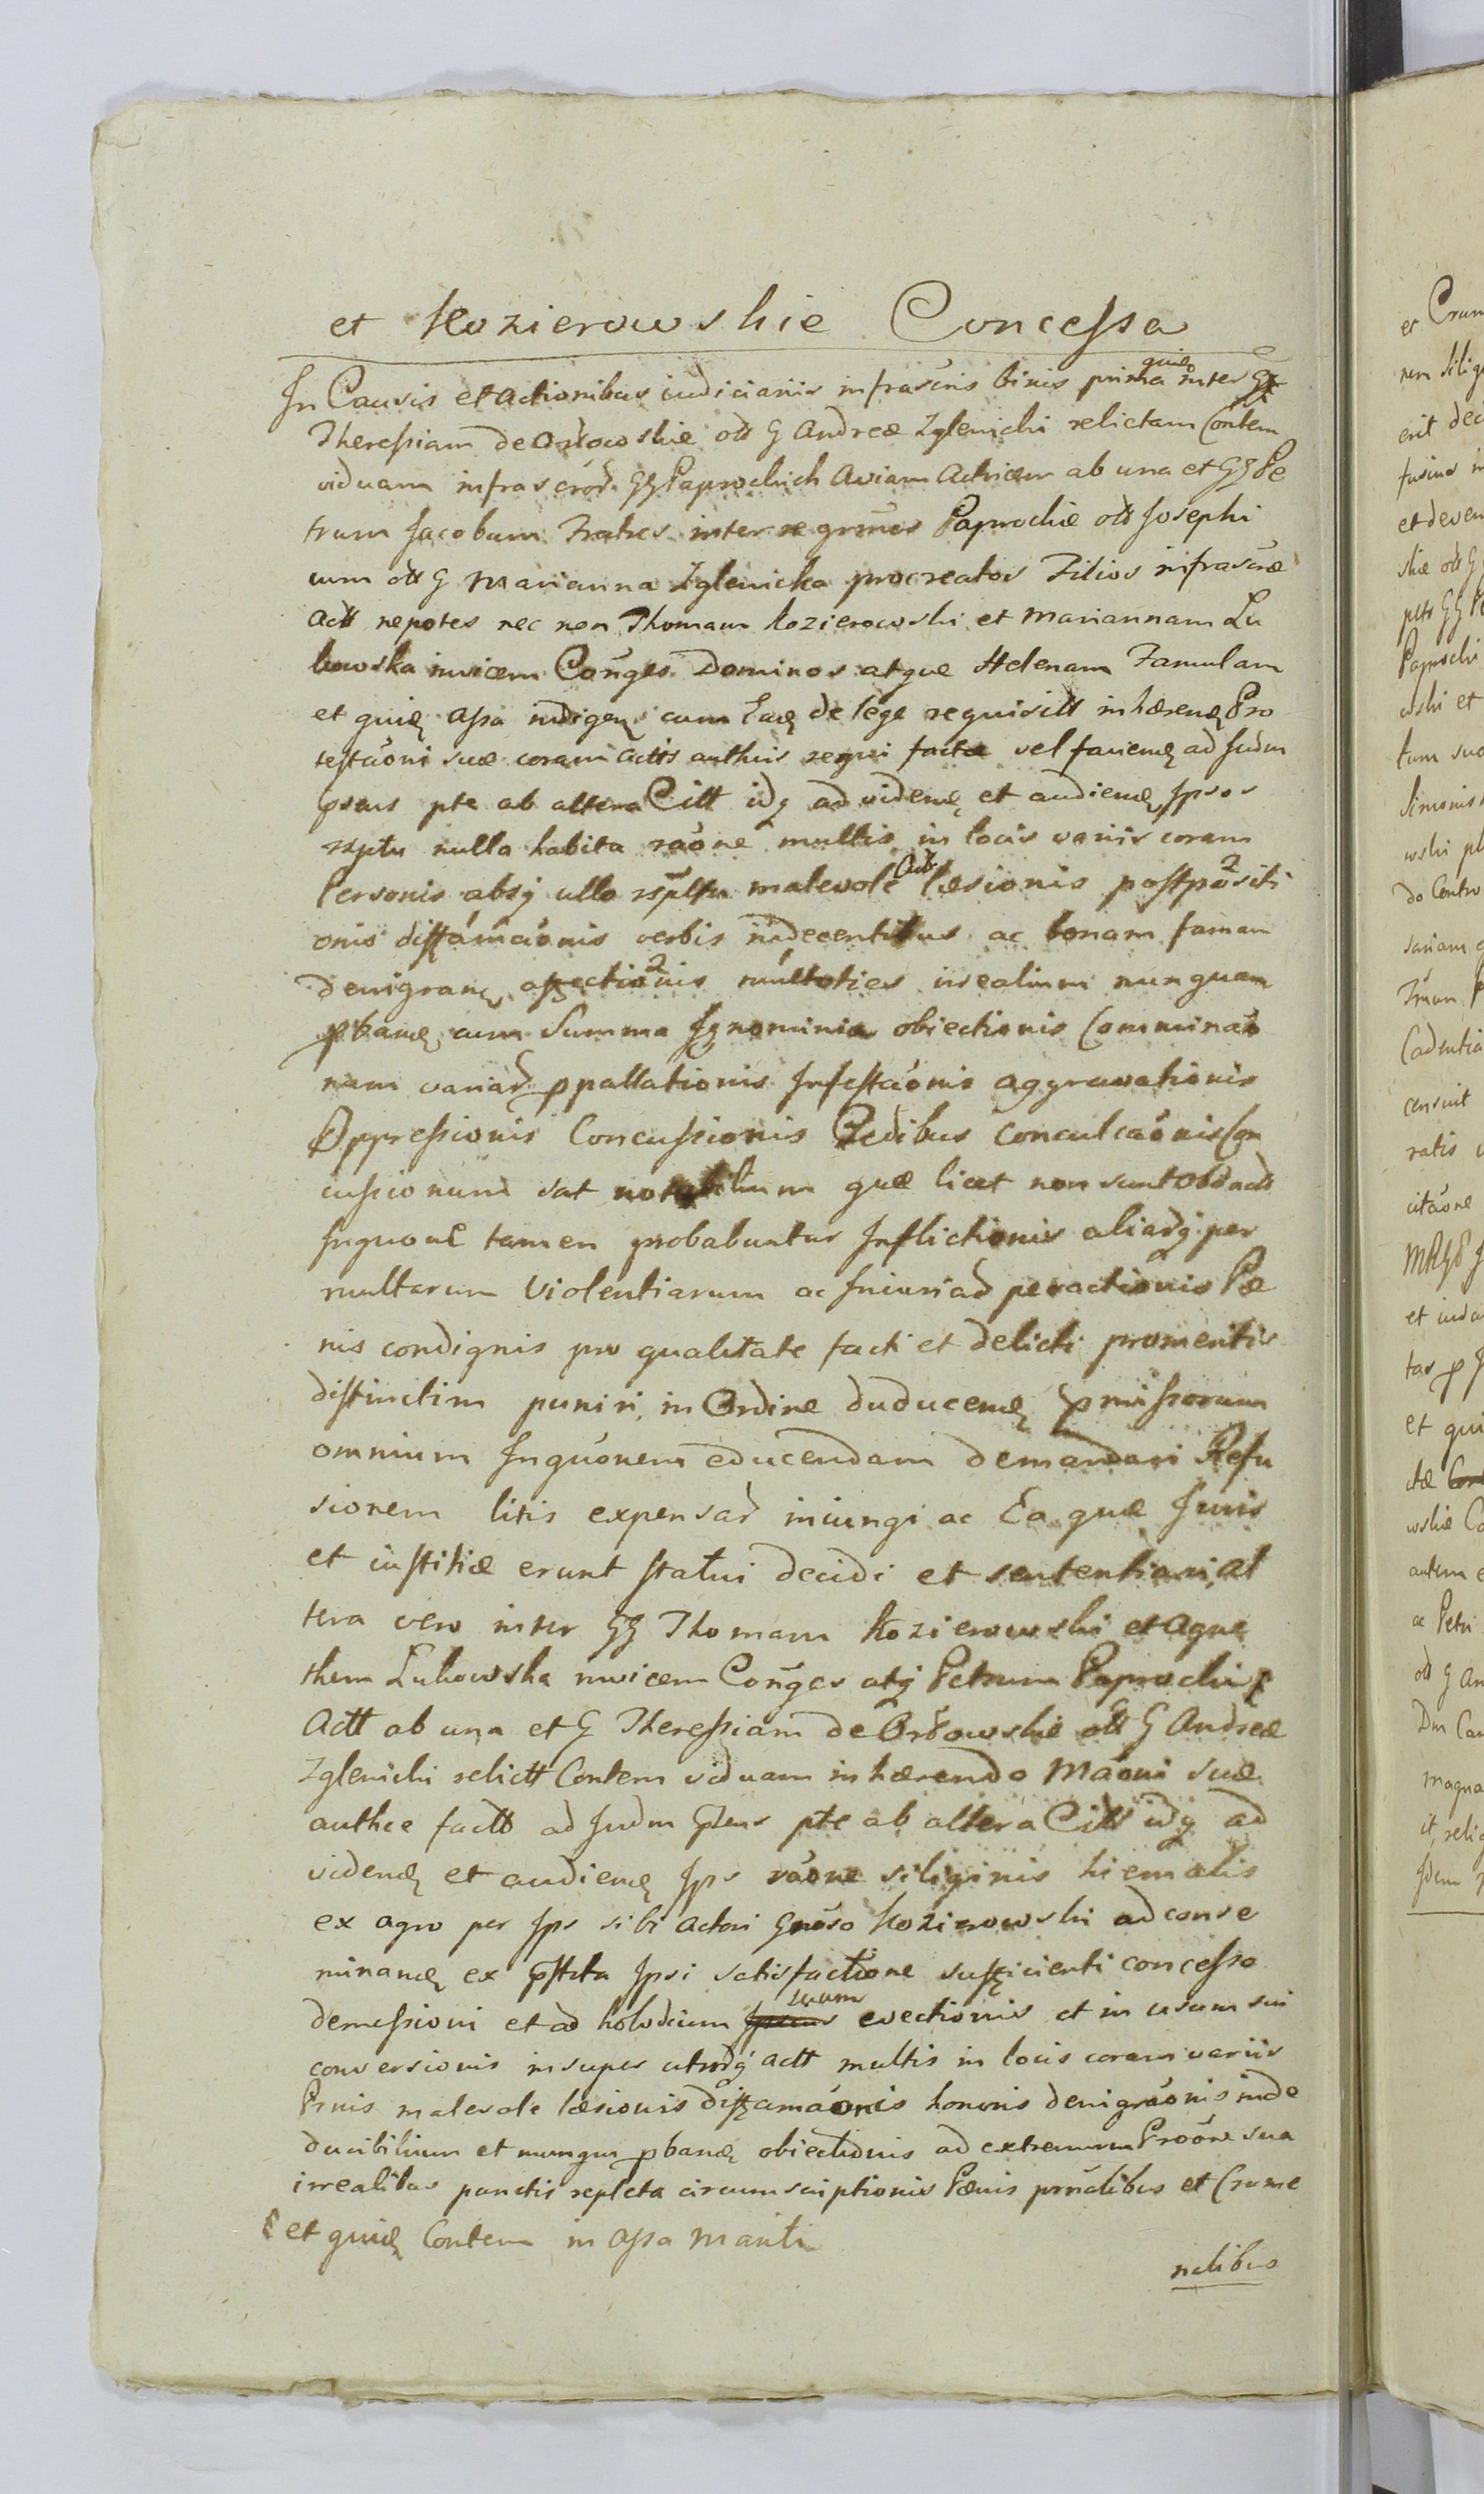 et Kozierowskie Concessa
In Causis et actionibus iudiciariis infrascris binis prima quidę inter G
Theressiam de Ordowskie olt G Andreæ Zglenicki relictam Contem
viduam infrascrod. GG Paprockich Aviam Actricem ab una et GG Pe
trum Jacobum Fratres inter se grmos Paprockie olt Josephi
cum olt G Marianna Zglenicka procreatos Filios infrascræ
Actt nepotes nec non Thomam Kozierowski et Mariannam Lu
bowska invicem Conges Dominos atque Helenam Famulam
et quidę assa indigeņ cum Eadę de lege requisitt inhærendę Pro
testaoni suæ coram actis authcis sequi factæ vel faciendę ad Judm
psens pte ab altera Citt idq ad videndę et audiendę Ipsos
rsptu nulla habita raone multis in locis variis coram
Personis absq ullo rspltu malevole Act læsionis postpositi
onis diffamaonis verbis indecentibus ac bonam famam
denigranę affectionis multoties irealium nunquam
pbandę cum Summa Ignominia obiectionis Comminao
num variar ppallationis Infestaonis aggravationis
Oppressionis Concussionis Pedibus conculcaonis Con
cussionum sat notabilium quæ licet non sunt obdact
Inquone tamen probabuntur Inflictionis aliarq per
multarum Violentiarum ac Iniuriar peractionis Pæ
nis condignis pro qualitate facti et delicti promeritis
distinctim puniri, in Ordine duducendę pmissorum
omnium Inquonem educendam demandari Refu
sionem litis expensar iniungi ac Ea quæ Juris
et iustitiæ erunt statui decidi et sententiari, al
tera vero inter GG Thomam Kozierowski et Agne
them Lukowska invicem Conges atq Petrum Paprocki
Actt ab una et G Theressiam de Ordowskie olt G Andreæ
Zglenicki relictt Contem viduam inhærendo Maoni suæ
authce factt ad Judm psens pte ab altera Citt idq ad
videndę et audiendę Ips raone siliginis hiemalis
ex agro per Ips sibi actori Gnoso Kozierowski ad conse
minandę ex pstita Ipsi satisfactione sufficienti concesso
demessioni et ad holodium suum evectionis et in usum sui
conversionis insuper utrorq actt multis in locis coram variis
Prnis malevole læsionis diffamaonis honoris denigraonis inde
ducibilium et nunqm pbandę obiectionis ad extremum Proone sua
irrealibus punctis repleta circumscriptionis Pænis prnalibus et Crime
et quidę Contem in assa mariti
nalibus